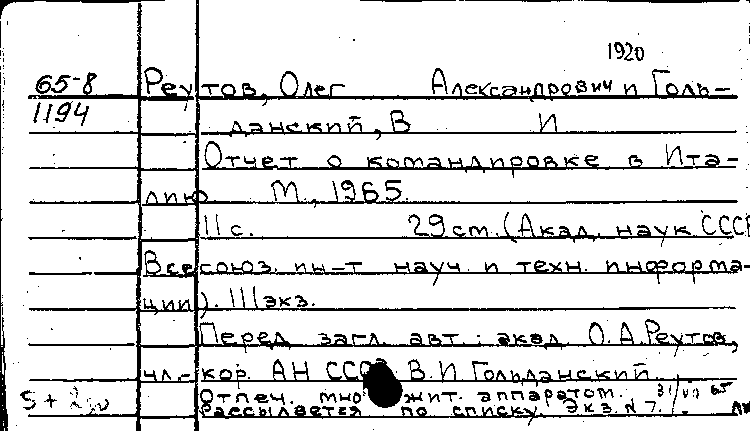 1920
65-8 Реутов, Олег Александрович и Голь-
1194
данский, В И
Отчет о командировке в Ита-
лию М., 1965.
11 с. 29 см. (Акад. наук СССР
Всесоюз. ин-т науч. и техн. информа-
ции). 111 экз.
Перед загл. авт.: акад. О.А.Реутов,
чл.-кор. АН СССР В.И Гольданский
Отпеч. множит. аппаратом. 31/VII 65
Рассылается по списку. Экз. N 7.